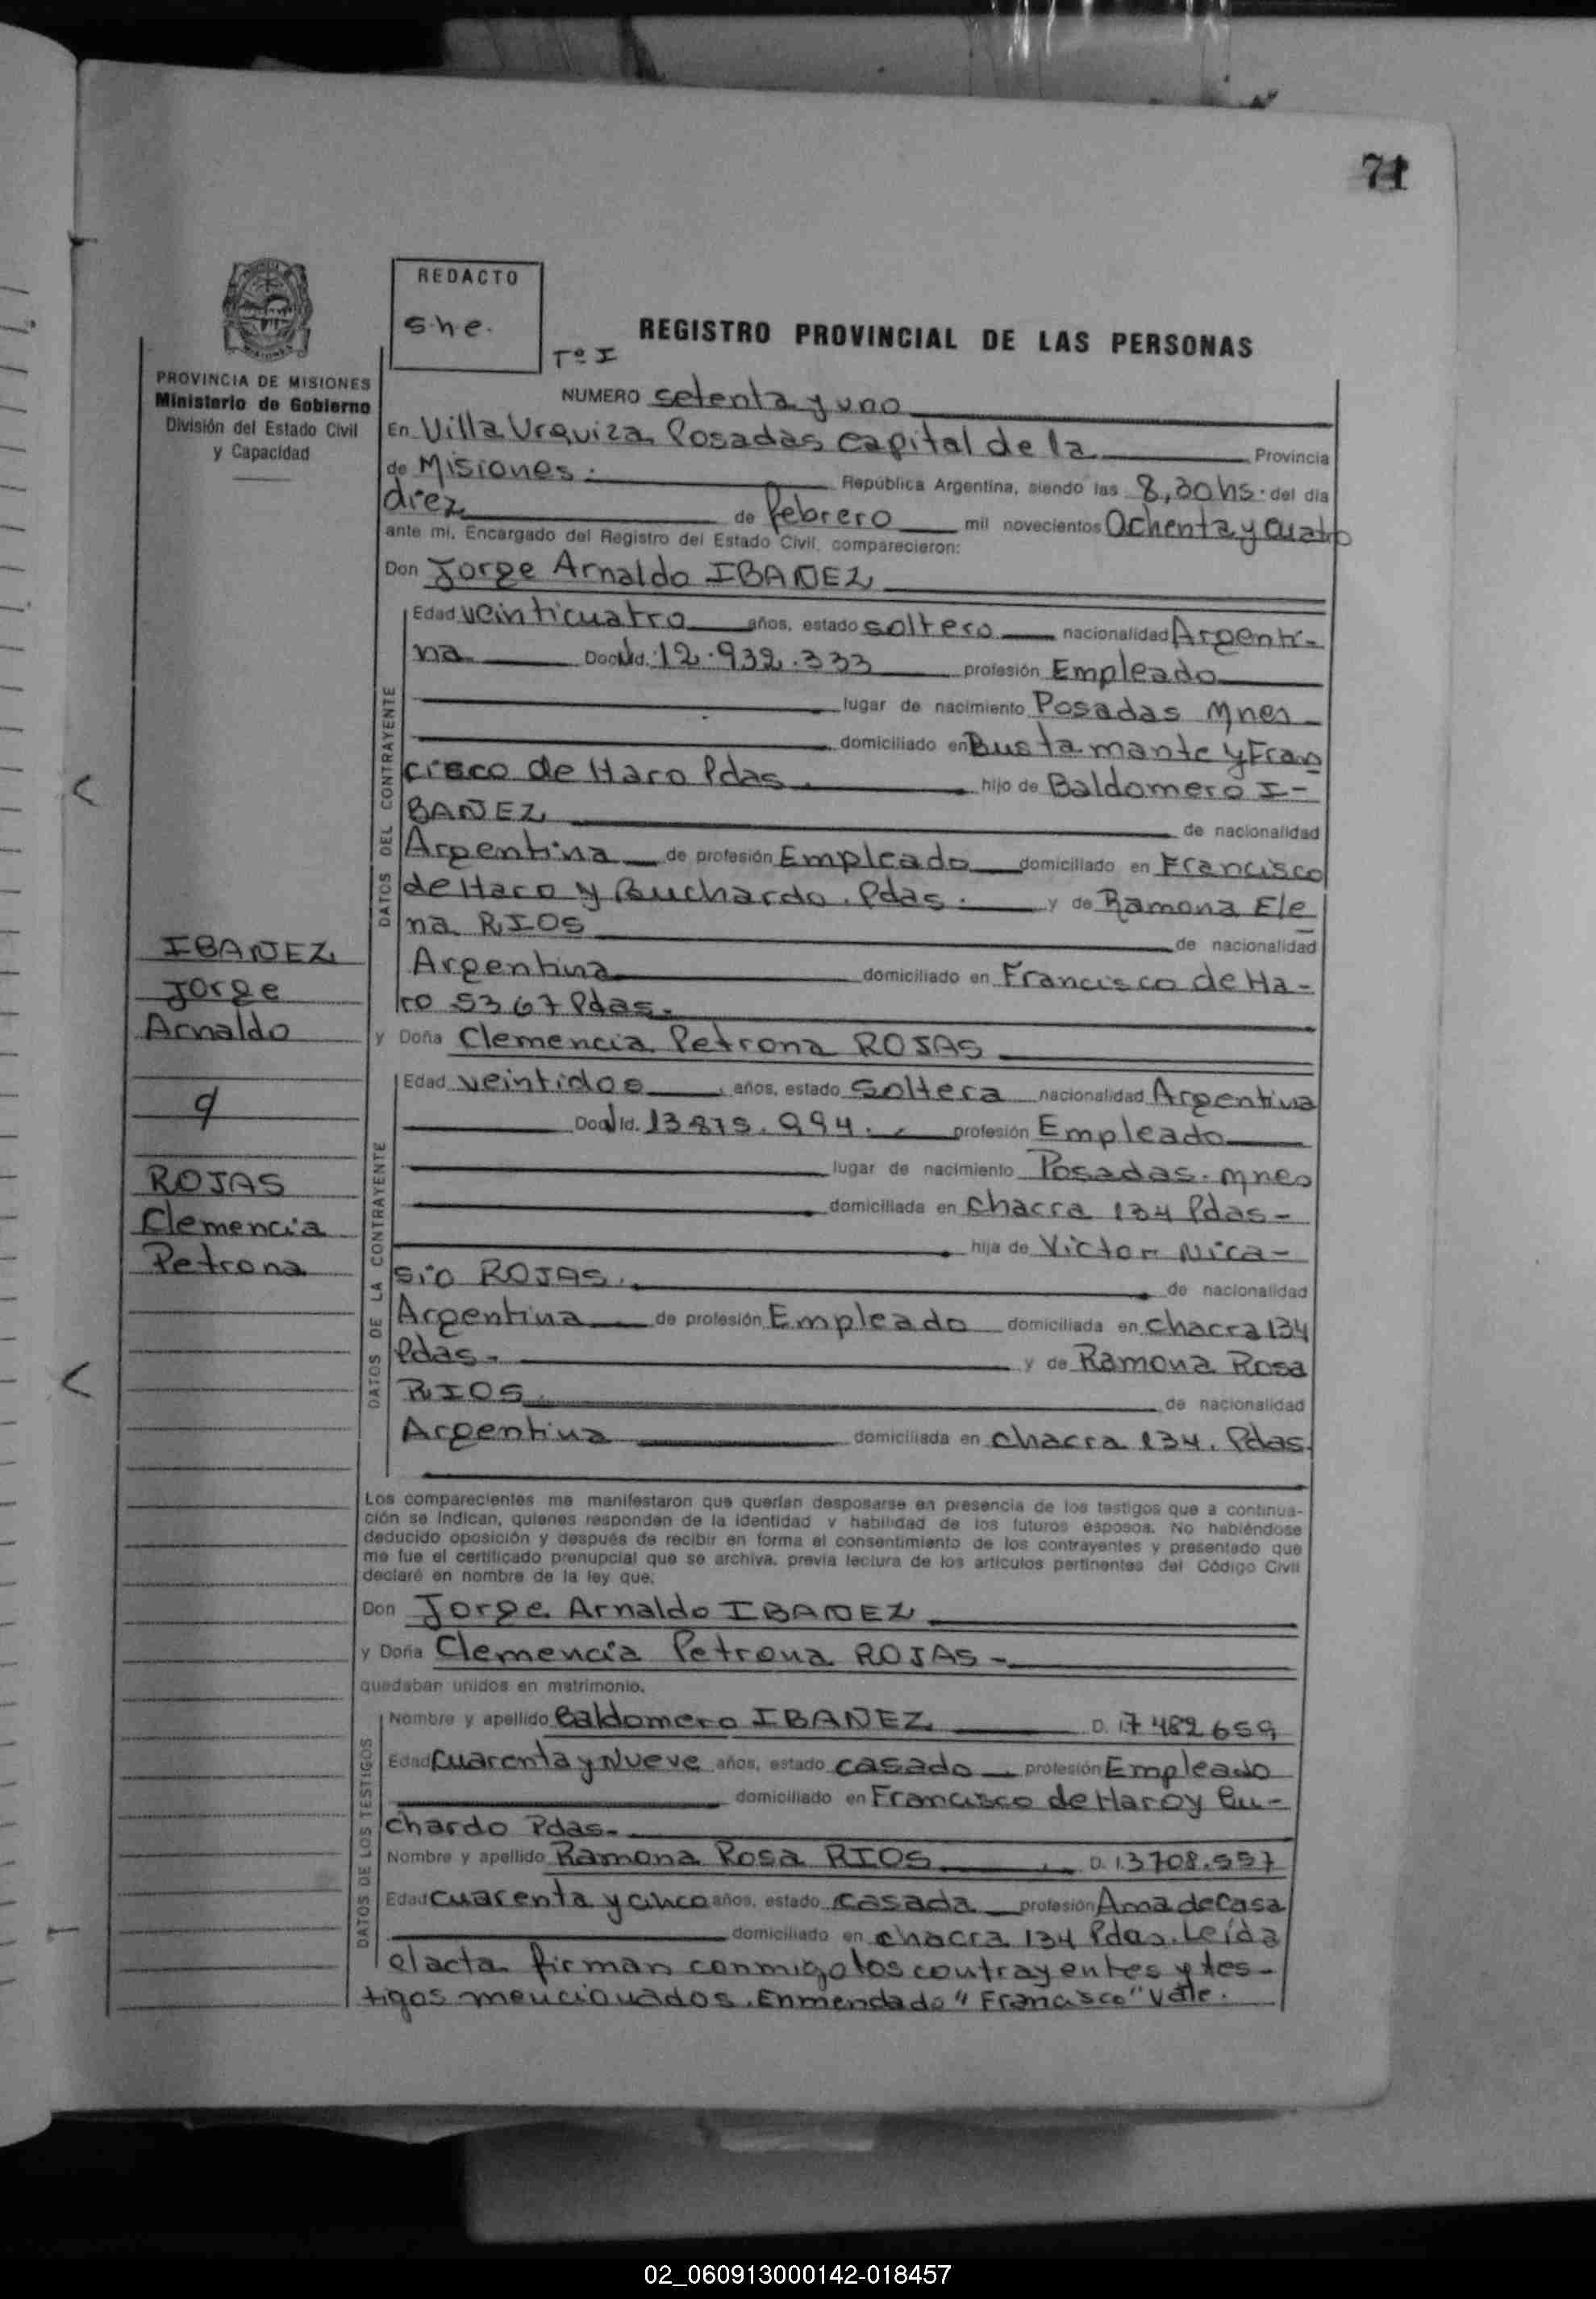 71
REDACTO
s.h.e.
Tº I
REGISTRO PROVINCIAL DE LAS PERSONAS
PROVINCIA DE MISIONES
Ministerio de Gobierno
División del Estado Civil
y Capacidad
NUMERO setenta y uno
En Villa Urquiza Posadas capital de la Provincia
de Misiones. República Argentina, siendo las 8,30 hs. del día
diez de febrero mil novecientos Ochenta y cuatro
ante mi, Encargado del Registro del Estado Civil, comparecieron:
Don Jorge Arnaldo IBAÑEZ
DATOS DEL CONTRAYENTE
Edad veinticuatro años, estado soltero nacionalidad Argenti-
na Doc. Id. 12.932.333 profesión Empleado
lugar de nacimiento Posadas Mnes
domiciliado en Bustamante y Fran
cisco de Haro Pdas. hijo de Baldomero I-
BAÑEZ de nacionalidad
Argentina de profesión Empleado domiciliado en Francisco
de Haro y Buchardo. Pdas. y de Ramona Ele
na RIOS de nacionalidad
Argentina domiciliado en Francisco de Ha-
ro 5367 Pdas.
y Doña Clemencia Petrona ROJAS
DATOS DE LA CONTRAYENTE
Edad veintidos años, estado Soltera nacionalidad Argentina
Doc. Id. 13.875.994. profesión Empleado
lugar de nacimiento Posadas. Mnes
domiciliada en chacra 134 Pdas-
hija de Victor Nica-
sio ROJAS. de nacionalidad
Argentina de profesión Empleado domiciliada en chacra 134
Pdas- y de Ramona Rosa
RIOS. de nacionalidad
Argentina domiciliada en chacra 134. Pdas.
IBAÑEZ
Jorge
Arnaldo
ROJAS
Clemencia
Petrona
Los comparecientes me manifestaron que querían desposarse en presencia de los testigos que a continua-
ción se indican, quienes responden de la identidad y habilidad de los futuros esposos. No habiéndose
deducido oposición y después de recibir en forma el consentimiento de los contrayentes y presentado que
me fue el certificado prenupcial que se archiva, previa lectura de los artículos pertinentes del Código Civil
declaré en nombre de la ley que:
Don Jorge Arnaldo IBAÑEZ
y Doña Clemencia Petrona ROJAS-
quedaban unidos en matrimonio.
DATOS DE LOS TESTIGOS
Nombre y apellido Baldomero IBAÑEZ D. I. 7482659
Edad cuarenta y Nueve años, estado casado profesión Empleado
domiciliado en Francisco de Haro y Bu-
chardo Pdas-
Nombre y apellido Ramona Rosa RIOS D. I. 3708.557
Edad cuarenta y cinco años, estado casada profesión Ama de Casa
domiciliado en chacra 134 Pdas. Leída
el acta firman conmigo los contrayentes y tes-
tigos mencionados. Enmendado "Francisco" Vale.
02_060913000142-018457